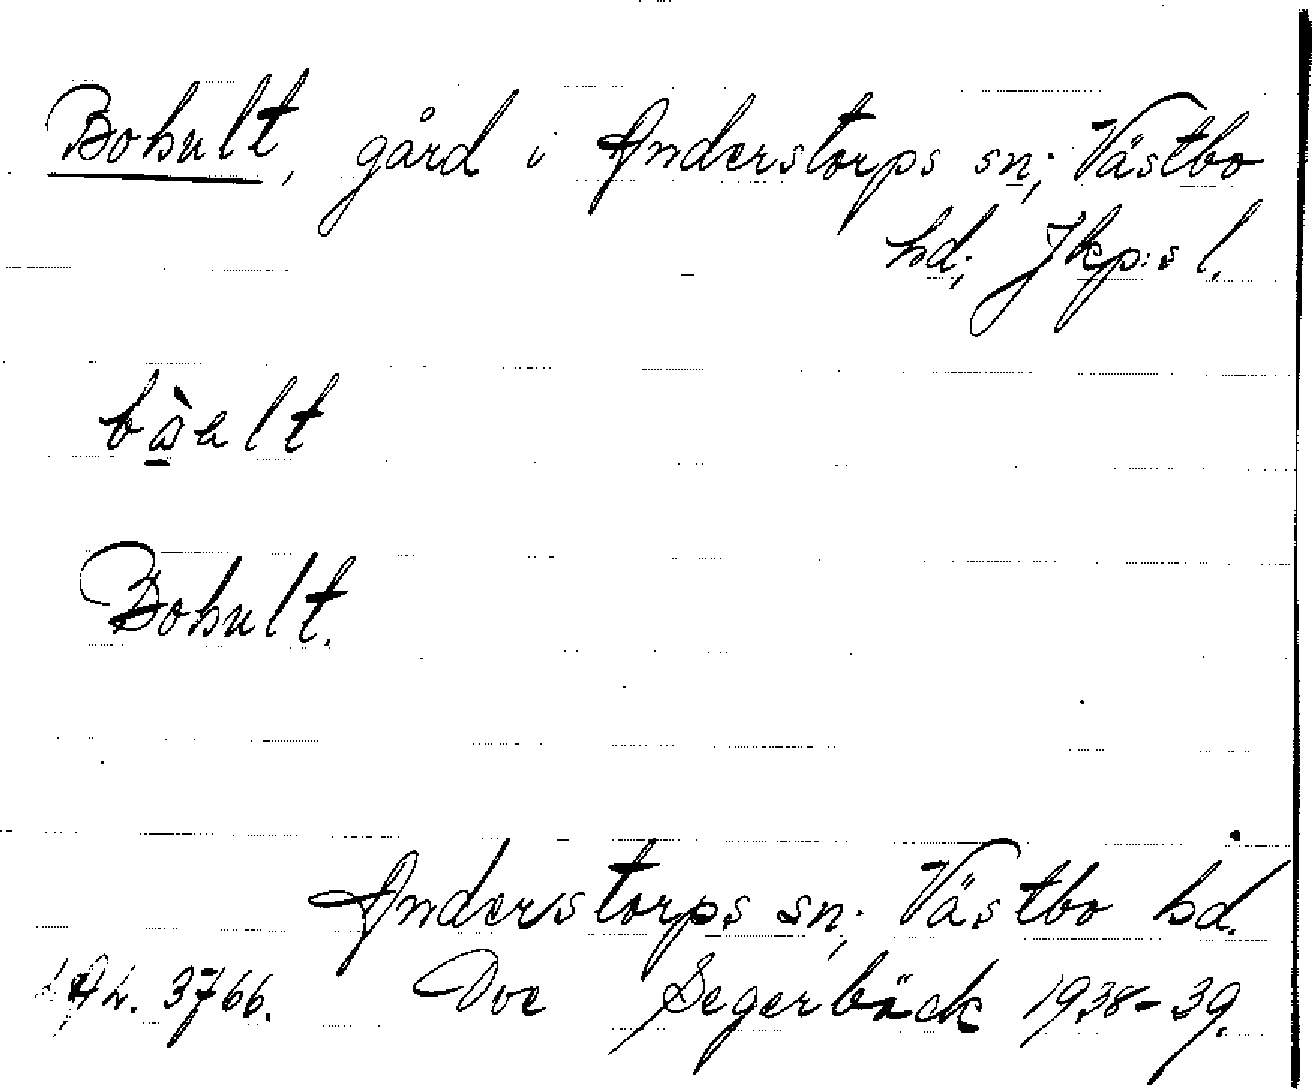 Bohult, gård i Anderstorps sn; Västbo
hd; Jkp:s l.
Bohult.
Anderstorps sn; Västbo hd.
3766. Segerbäck 1938-39.